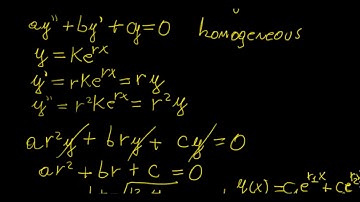 ay'' + by' + cy = 0 homogeneous
y = Ke^{rx}
y' = rKe^{rx} = ry
y'' = r²Ke^{rx} = r²y
ar²y + bry + cy = 0
ar² + br + c = 0
y(x) = C₁e^{r₁x} + C